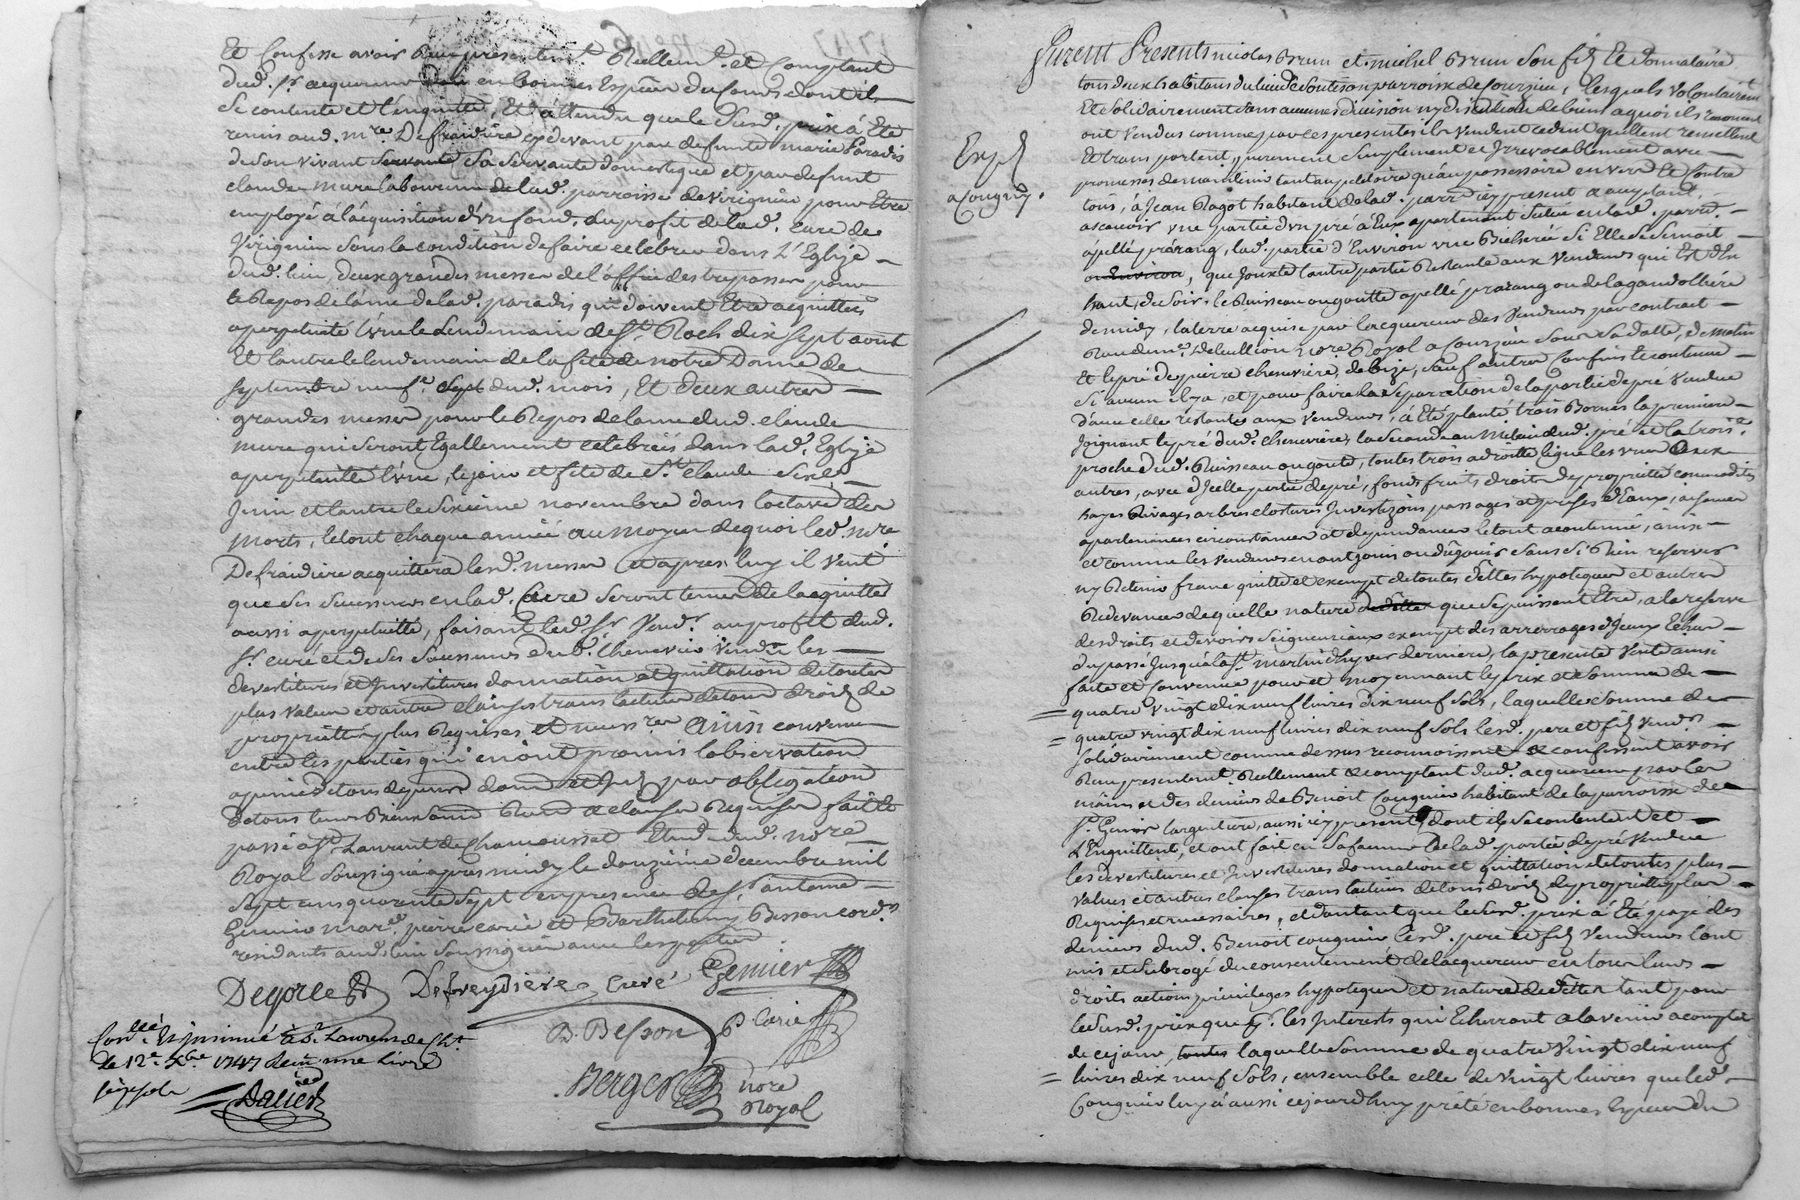 Et Confesse avoir Reçu presentement Reellem.t et Comptant
dud. Sr. acquereur en bonnes Especes du Cours dont il
Se contente et l'enquitte, Et attendu que le Susd. prix à Eté
remis aud. m.re Defraidière cydevant par defunte marie Paradis
de son vivant Sa Servante domestique et par defunt
claude mure laboureur de lad. parroisse de virignieu pour Etre
employé à l'acquisition d'un fond. au profit de lad. Cure de
Virignieu Sous la condition de faire celebrer dans L'Eglise
dud. lieu, deux grandes messes de l'office des trepasses pour
le Repos de l'ame de lad. paradis qui doivent Etre acquittées
a perpetuité l'une le Lendemain de St. Roch dix Sept aout
Et l'autre le lendemain de la fête de notre Dame de
Septembre neufe. dud. mois, Et deux autres
grandes messes pour le Repos de l'ame dud. claude
mure qui Seront Egallement celebrées dans lad. Eglise
a perpetuitté l'une, le jour et fête de St. claude Six
Juin et l'autre le Sixieme novembre dans l'octave des
Morts, le tout chaque année au moyen de quoi led. m.re
Defraidière acquittera lesd. messes et apres luy il Veut
que Ses Successeurs en lad. Cure Seront tenus de l'acquitter
aussi a perpetuitté, faisant led. Sr. Vend.r au profit dud.
Sr. curé et de Ses Successeurs dud. Chenevier Vendu les
devestitures et Investitures donnation et quittation de toutes
plus values et autres clauses translatives de tous droits de
proprietté plus Requises et necess.res ainsi convenu
entre les parties qui en ont promis l'observation
a peine de tous depens dom. et Int. par obligation
de tous leurs Biens Soum. Renon. et clauses Requises fait et
passé a St. Laurent de Chamousset Etude dud. no.re
Royal Soussigné apres midy le douzieme decembre mil
Sept cens quarente Sept en presence de Sr. antoine
Gemier mar., pierre carié et Barthelemy Besson cord.rs
residants aud. lieu Soussignés avec les parties
Degorce Defreydiere Curé Gemier
B. Besson P. Carie
Berger no.re Royal
Con.llé Et insinué à St. Laurent de Ch.t
Le 12.e Xbre 1747 Recu une Livre
Dauer
Furent Presents nicolas Brun et michel Brun Son fils Et donnataire
tous deux habitans du lieu de Souteson parroisse de , lesquels volontairem.t
Et Solidairement Sans aucune division ny discution de biens a quoi ils renoncent
ont Vendus comme par ces presentes ils Vendent cedent quittent remettent
Et transportent, purement Simplement et Irrevocablement avec
promesses de maintenir tant au petitoire qu'au possessoire envers Et contre
tous, à Jean Ragot habitant de lad. parr. icy present et acceptant,
Expd
a Cougny.
ascavoir une partie d'un pré à Eux appartenant Situé en lad. parr.
apellé prarang, lad. partie d'Environ une Bicherée Si Elle Se Semoit
, que Jouxte l'autre partie Restante aux Vendeurs qui Est d'En
haut, de Soir, le Ruisseau ou goutte apellé prarang ou de la gandolliere
de midy, la terre acquise par l'acquereur des Vendeurs par contract
Recu de m.e Deleullion no.re Royal a Sous Sa datte, de matin
Et le pré de pierre cheneviere, de bize, Sauf autres Confins Et contenue
Si aucun il y a, et pour faire la Separation de la partie de pré Vendue
d'avec celle restantes aux Vendeurs, à Eté planté trois Bornes la premiere
Joignant le pré dud. Chenevière, la Seconde au Milieu dud. pré et la trois.e
proche dud. Ruisseau ou goute, toutes trois a droitte ligne les unes aux
autres, avec d'Icelle partie de pré, fonds fruits droits de proprietté commodités
hayes Rivages arbres clostures Investizons passages et prises d'Eaux, aisances
apartenances circonstances et dependances le tout accoutumé, ainsi
et comme les Vendeurs en ont jouis ou dû jouir Sans Si Rien reserver
ny Retenir franc quitte et exempt de toutes dettes hypoteques et autres
Redevances de quelle nature que Se puissent Etre, a la reserve
des droits et devoirs Seigneuriaux exempt des arrerages d'Iceux Echus
du passé Jusqu'a la St. martin d'hyver derniere, la presente Vente ainsi
faite et Convenue pour et moyennant le prix et Somme de
quatre Vingt dix neuf livres dix neuf Sols, laquelle Somme de
quatre vingt dix neuf livres dix neuf Sols lesd. pere et fils Vendrs
Solidairement comme dessus reconnoissent et confessent avoir
Recu presentemt. Reellement et comptant dud. acquereur par les
mains et des deniers de Benoit Cougnier habitant de la parroisse de
St. Genis l'argentiere, aussi icy present, dont ils Se contentent et
L'Enquittent, et ont fait en Sa faveur de lad. partie de pré Vendue
les devestitures et Investitures donnation et quittation de toutes plus
values et autres clauses translatives de tous droits de proprietté plus
Requises et necessaires, et d'autant que le Susd. prix à Eté payé des
deniers dud. Benoit Cougnier lesd. pere et fils Vendeurs l'ont
mis et Subrogé du consentement de l'acquereur en tous leurs
droits actions privileges hypoteques et nature de dettes tant pour
le Susd. prix que pr. les Interets qui Echerront a l'avenir a compter
de ce jour, laquelle Somme de quatre Vingt dix neuf
livres dix neuf Sols, ensemble celle de Vingt livres que led.
Cougnier luy à aussi cejourd'huy preté en bonnes Especes du